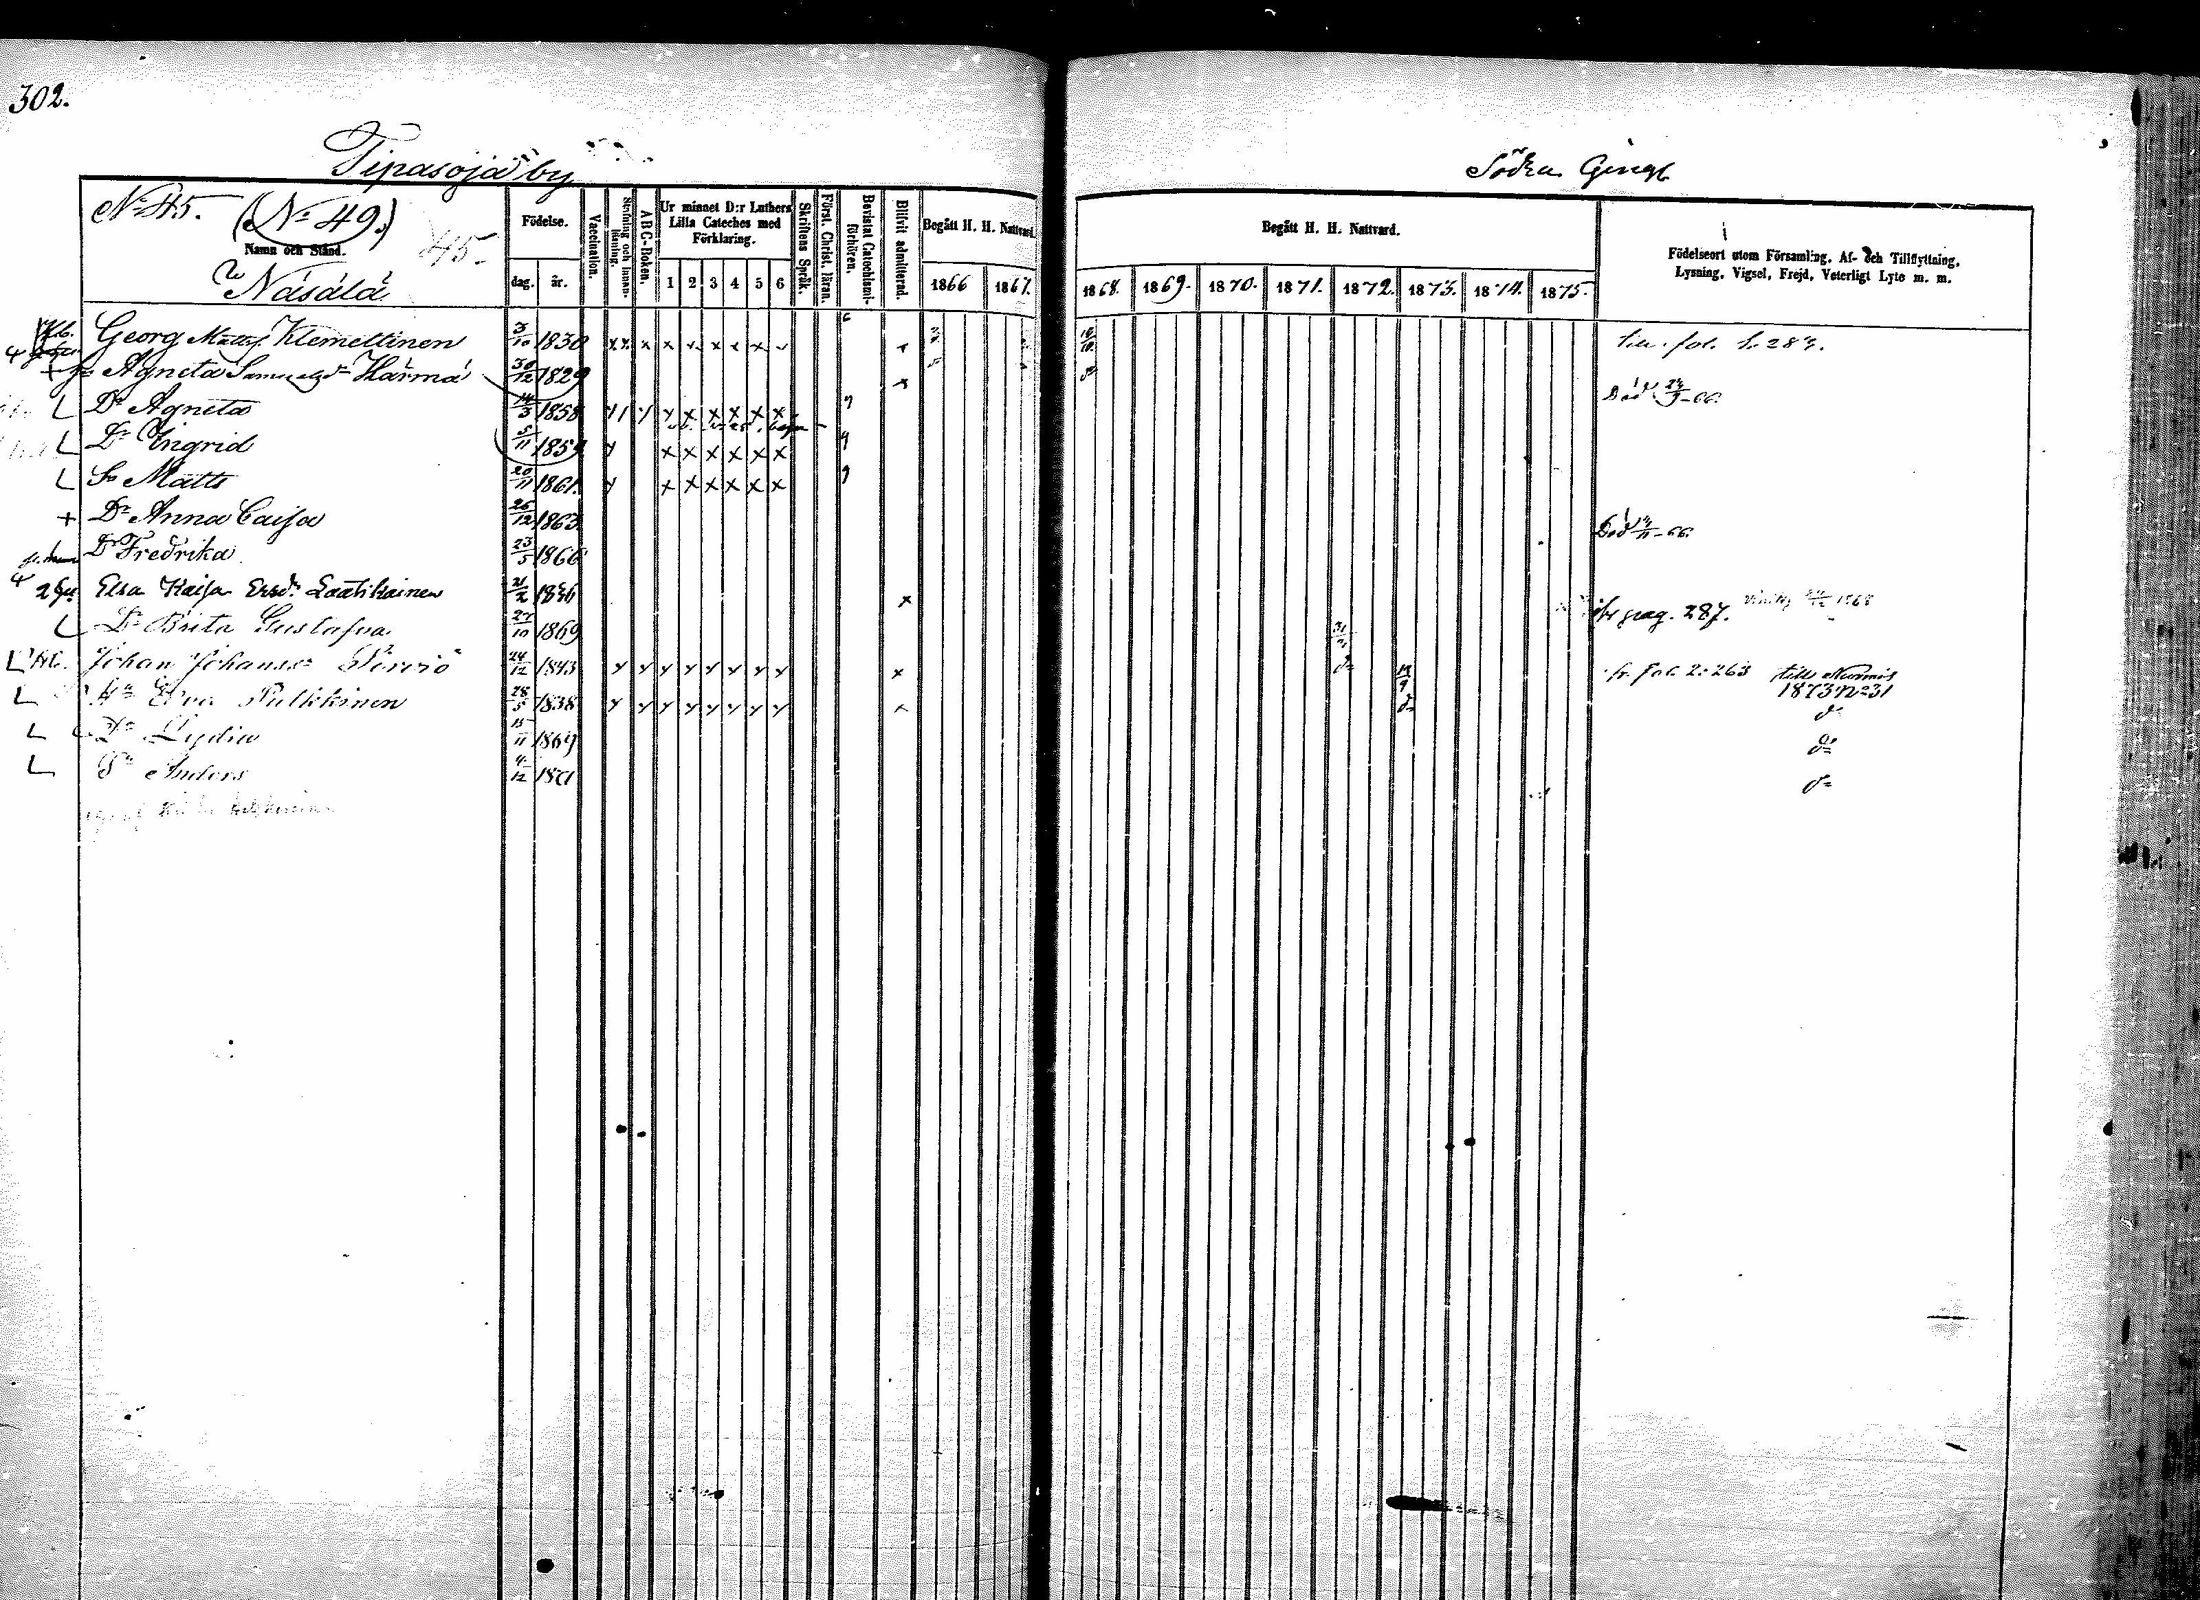 302.
Tipasoja by
Södra Gingl
No 45. (No 49.)
45.
Namn och Stånd.
Näsälä
Födelse.
dag. år.
Vaccination.
ABC-Boken.
Ur minnet D:r Luthers Lilla Cateches med Förklaring.
1 2 3 4 5 6
Skriftens Språk.
Först. Christ. läran.
Bevistat Catechismi-förhören.
Blifvit admitterad.
Begått H. H. Nattvard.
1866 1867.
Begått H. H. Nattvard.
1868. 1869. 1870. 1871. 1872. 1873. 1874. 1875.
Födelseort utom Församling, Af- och Tillflyttning, Lysning, Vigsel, Frejd, Veterligt Lyte m. m.
Georg Matts. Klemettinen 3/10 1830 x x x x x x x x x fol. 287.
Agneta Samuelsdr Härmä 30/12 1829 x Död 24/9-66.
Dr Agneta 14/3 1858 x x x x x x 9
Dr Ingrid 5/11 1859 x x x x x x 9
Sn Matts 20/11 1861. x x x x x x 9
+ Dr Anna Caisa 26/12 1863 Död -66.
Dr Fredrika 23/5 1866
Elsa Kaisa Ersdr Laatikainen 21/2 1846 x fr pag. 287. 1868
Dr Brita Gustafva 27/10 1869
Johan Johanss. 24/12 1843 x x x x x x x x x fr. fol. 2: 263 till Nurmis 1873 No 31
Hu Eva Pulkkinen 28/5 1838 x x x x x x x x x do
Dr Lydia 15/11 1869 do
Sn Anders 4/12 1871 do